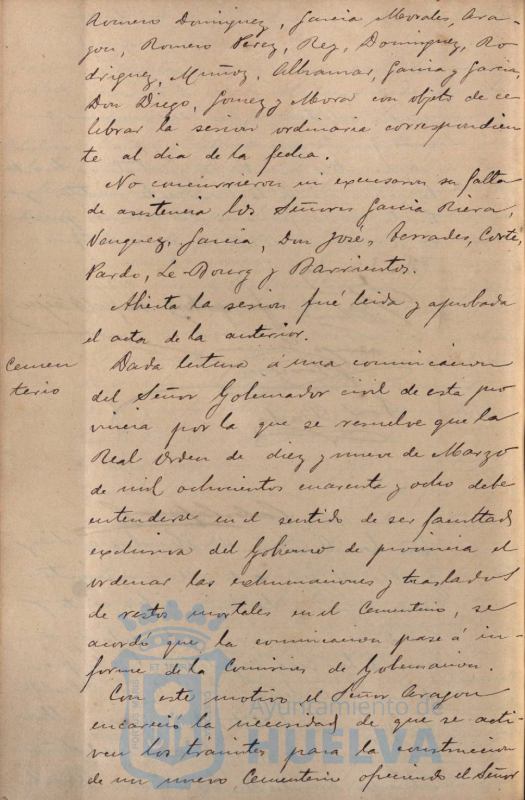 Romero Dominguez, Garcia Morales, Ara-
gon, Romero Perez, Rey, Dominguez, Ro-
driguez, Muñoz, Alhamar, Garcia y Garcia,
Don Diego, Gomez y Mora con objeto de ce-
lebrar la sesion ordinaria correspondien-
te al dia de la fecha.
No concurrieron ni excusaron su falta
de asistencia los Señores Garcia Riera,
Vazquez, Garcia, Don José, Terrades, Corté,
Pardo, Le-Bourg y Barrientos.
Abierta la sesion fué leida y aprobada
el acta de la anterior.
Cemen
terio
Dada lectura á una comunicacion
del Señor Gobernador civil de esta pro
vincia por la que se resuelve que la
Real Orden de diez y nueve de Marzo
de mil ochocientos cuarenta y ocho debe
entenderse en el sentido de ser facultad
exclusiva del Gobierno de provincia el
ordenar las exhumaciones y traslados
de restos mortales en el Cementerio, se
acordó que la comunicacion pase á in-
forme de la Comision de Gobernacion.
Con este motivo el Señor Aragon
encareció la necesidad de que se acti-
ven los trámites para la construccion
de un nuevo Cementerio ofreciendo el Señor
Ayuntamiento de
HUELVA